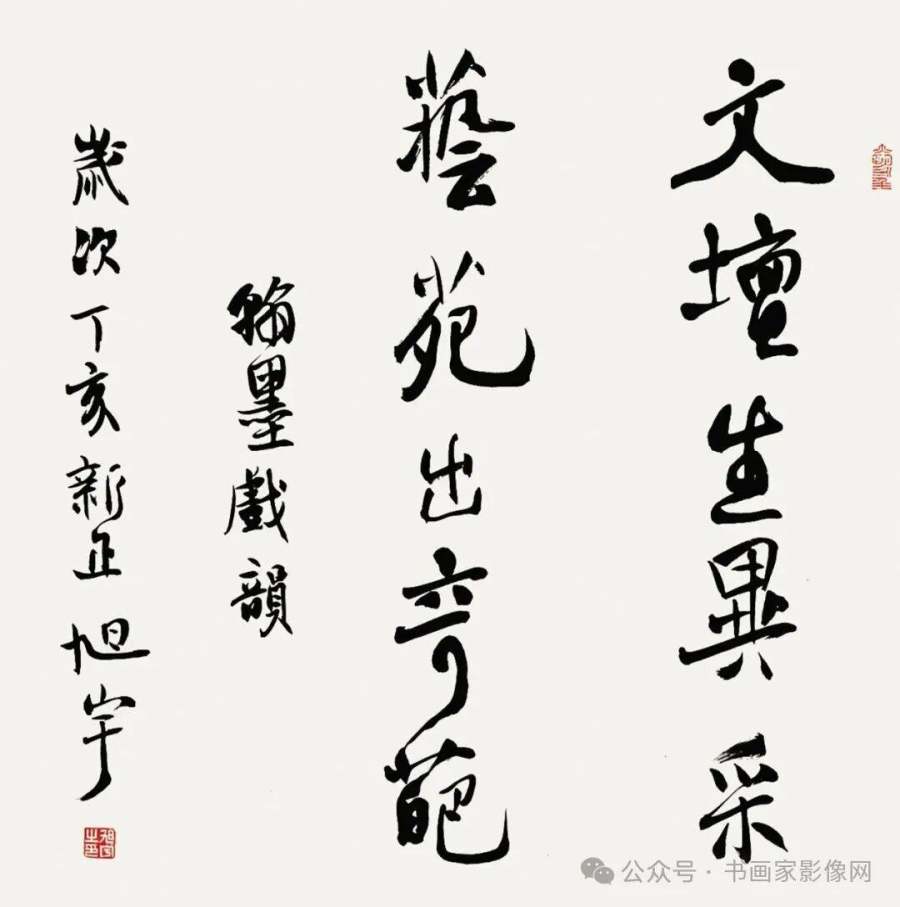 文壇生異采
藝苑出奇葩
翰墨戲韻
歲次丁亥新正 旭宇
旭宇之印
公众号·书画家影像网